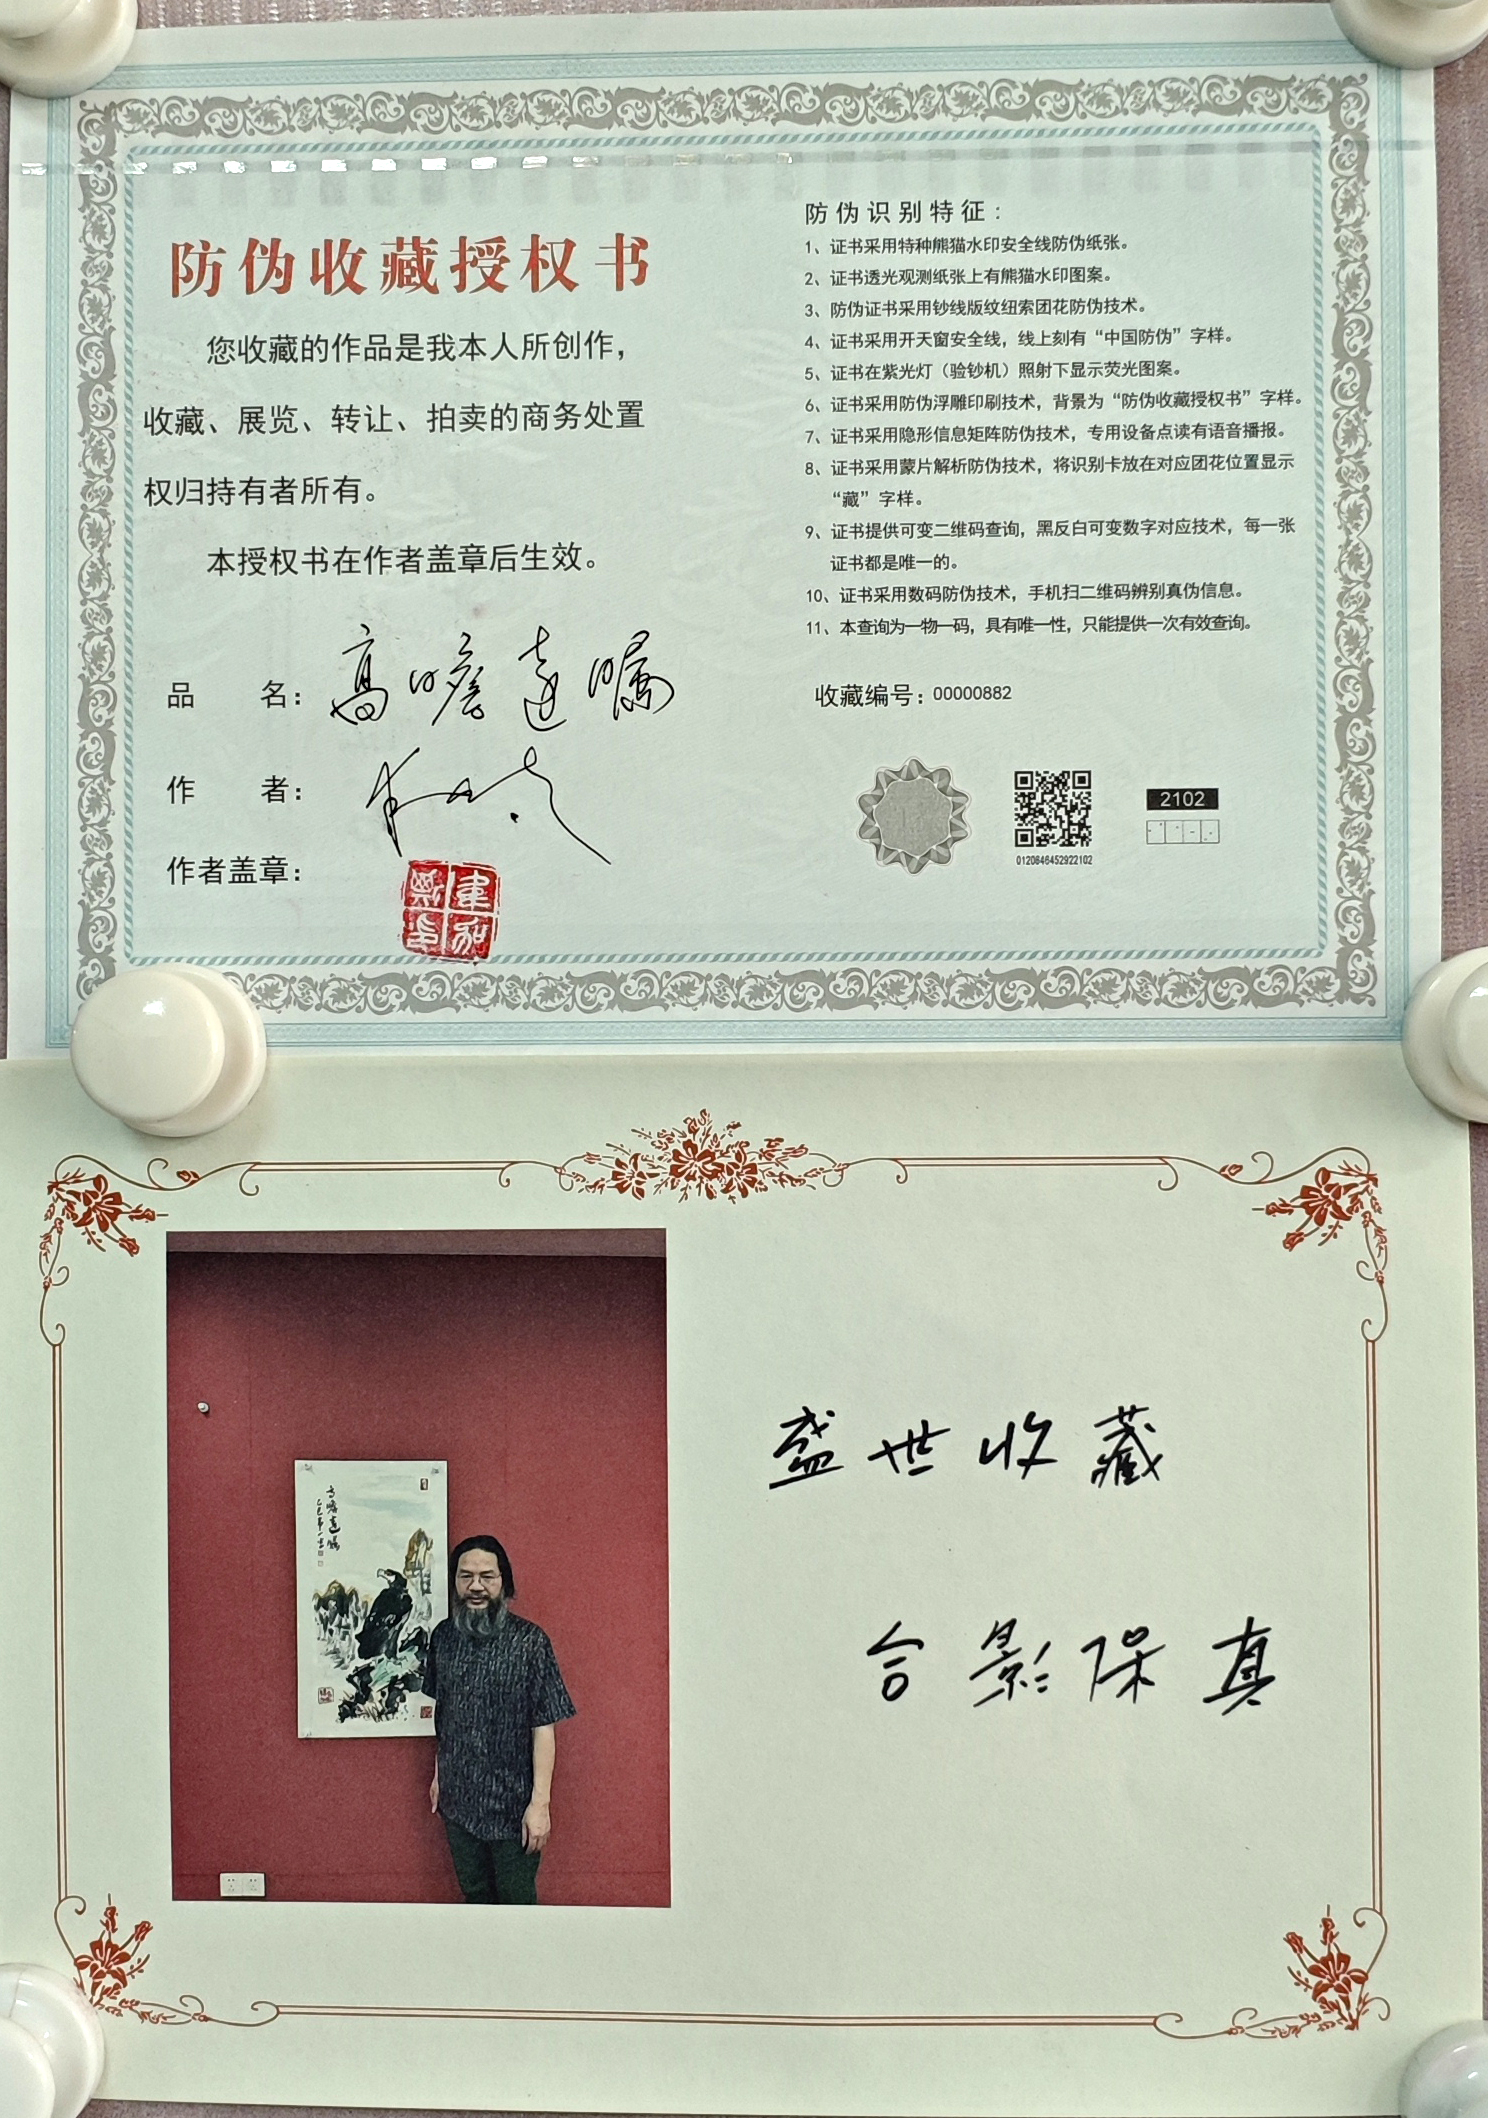 防伪收藏授权书
您收藏的作品是我本人所创作，
收藏、展览、转让、拍卖的商务处置
权归持有者所有。
本授权书在作者盖章后生效。
品 名：高瞻远瞩
作 者：
作者盖章：
防伪识别特征：
1、证书采用特种熊猫水印安全线防伪纸张。
2、证书透光观测纸张上有熊猫水印图案。
3、防伪证书采用钞线版纹纽索团花防伪技术。
4、证书采用开天窗安全线，线上刻有“中国防伪”字样。
5、证书在紫光灯（验钞机）照射下显示荧光图案。
6、证书采用防伪浮雕印刷技术，背景为“防伪收藏授权书”字样。
7、证书采用隐形信息矩阵防伪技术，专用设备点读有语音播报。
8、证书采用蒙片解析防伪技术，将识别卡放在对应团花位置显示
“藏”字样。
9、证书提供可变二维码查询，黑反白可变数字对应技术，每一张
证书都是唯一的。
10、证书采用数码防伪技术，手机扫二维码辨别真伪信息。
11、本查询为一物一码，具有唯一性，只能提供一次有效查询。
收藏编号：00000882
2102
0120646452922102
盛世收藏
合影保真
高瞻远瞩